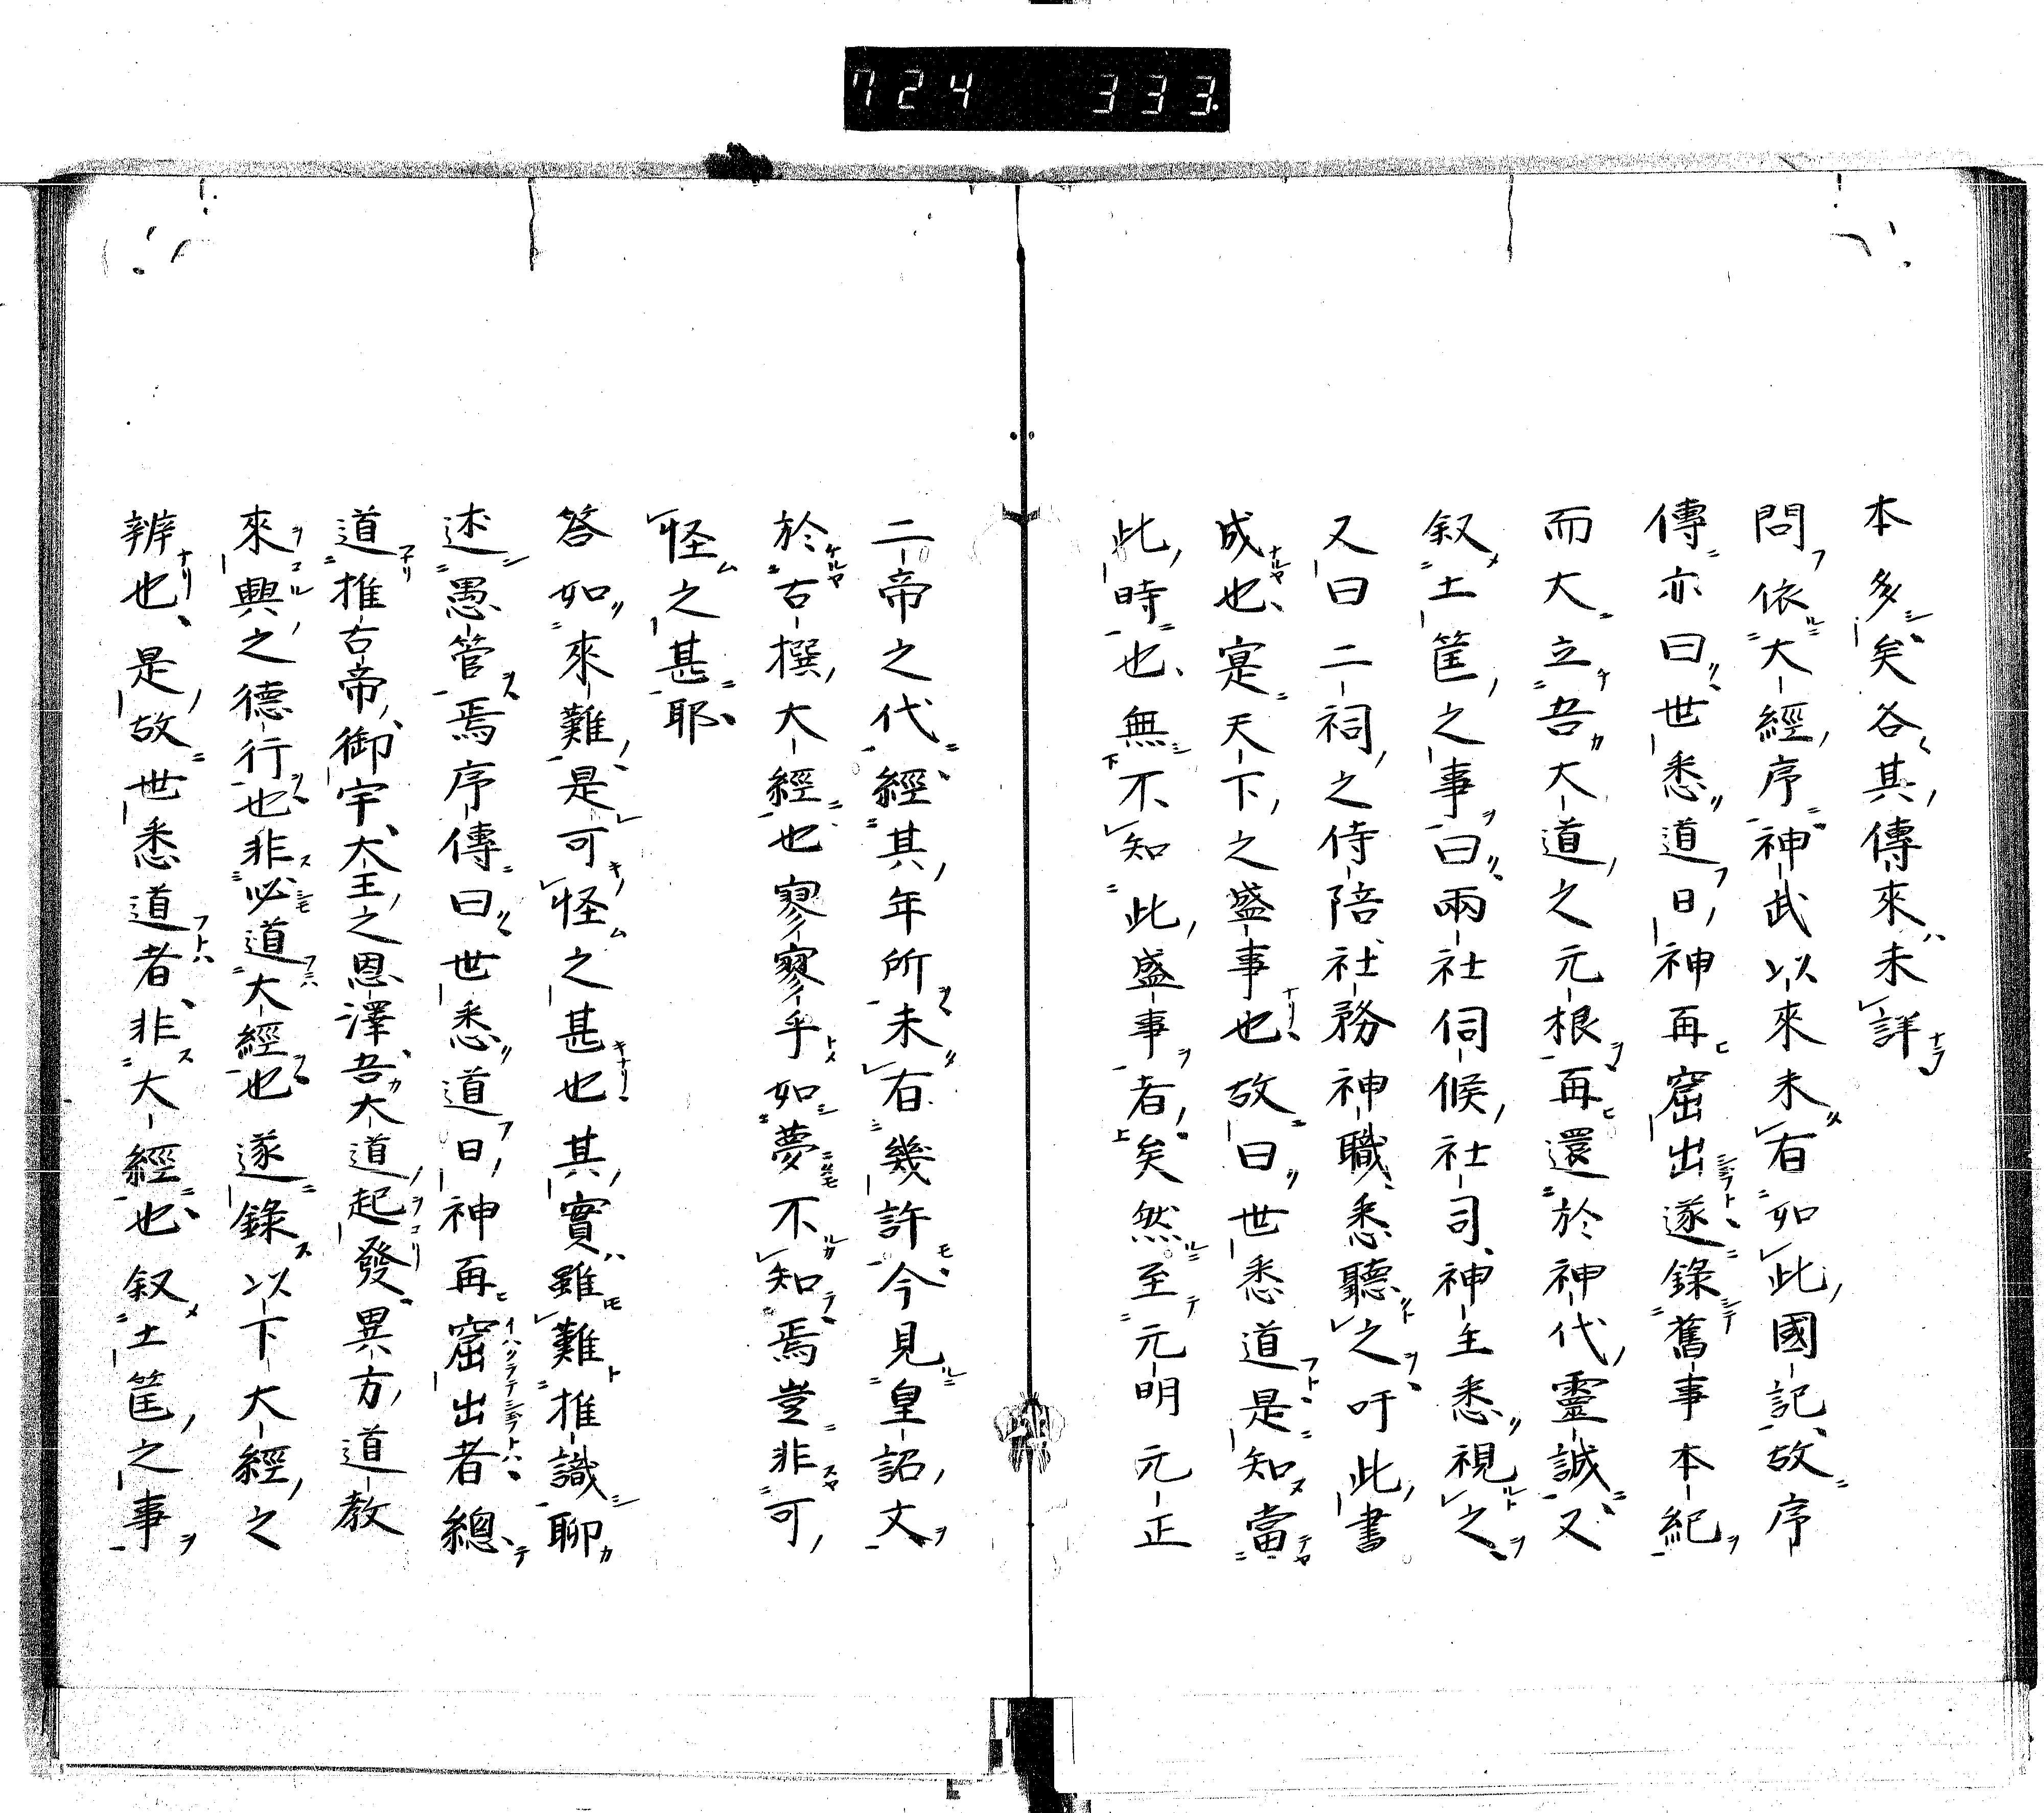 724 333
本多矣各其傳來未詳
問依大經序神武以來未有如此國記故序
傳亦曰世悉道日神再窟出遂錄舊事本紀
而大立吾大道之元根再還於神代靈誠又
叙土筐之事曰兩社伺候社司神主悉視之
又曰二祠之侍陪社務神職悉聽之吁此書
成也寔天下之盛事也故曰世悉道是知當
此時也無不知此盛事者矣然至元明元正
二帝之代經其年所未有幾許今見皇詔文
於古撰大經也寥寥乎如夢不知焉豈非可
怪之甚耶
答如來難是可怪之甚也其實雖難推識聊
述愚管焉序傳曰世悉道日神再窟出者總
道推古帝御宇大王之恩澤吾大道起發異方道教
來興之德行也非必道大經也遂錄以下大經之
辨也是故世悉道者非大經也叙土筐之事